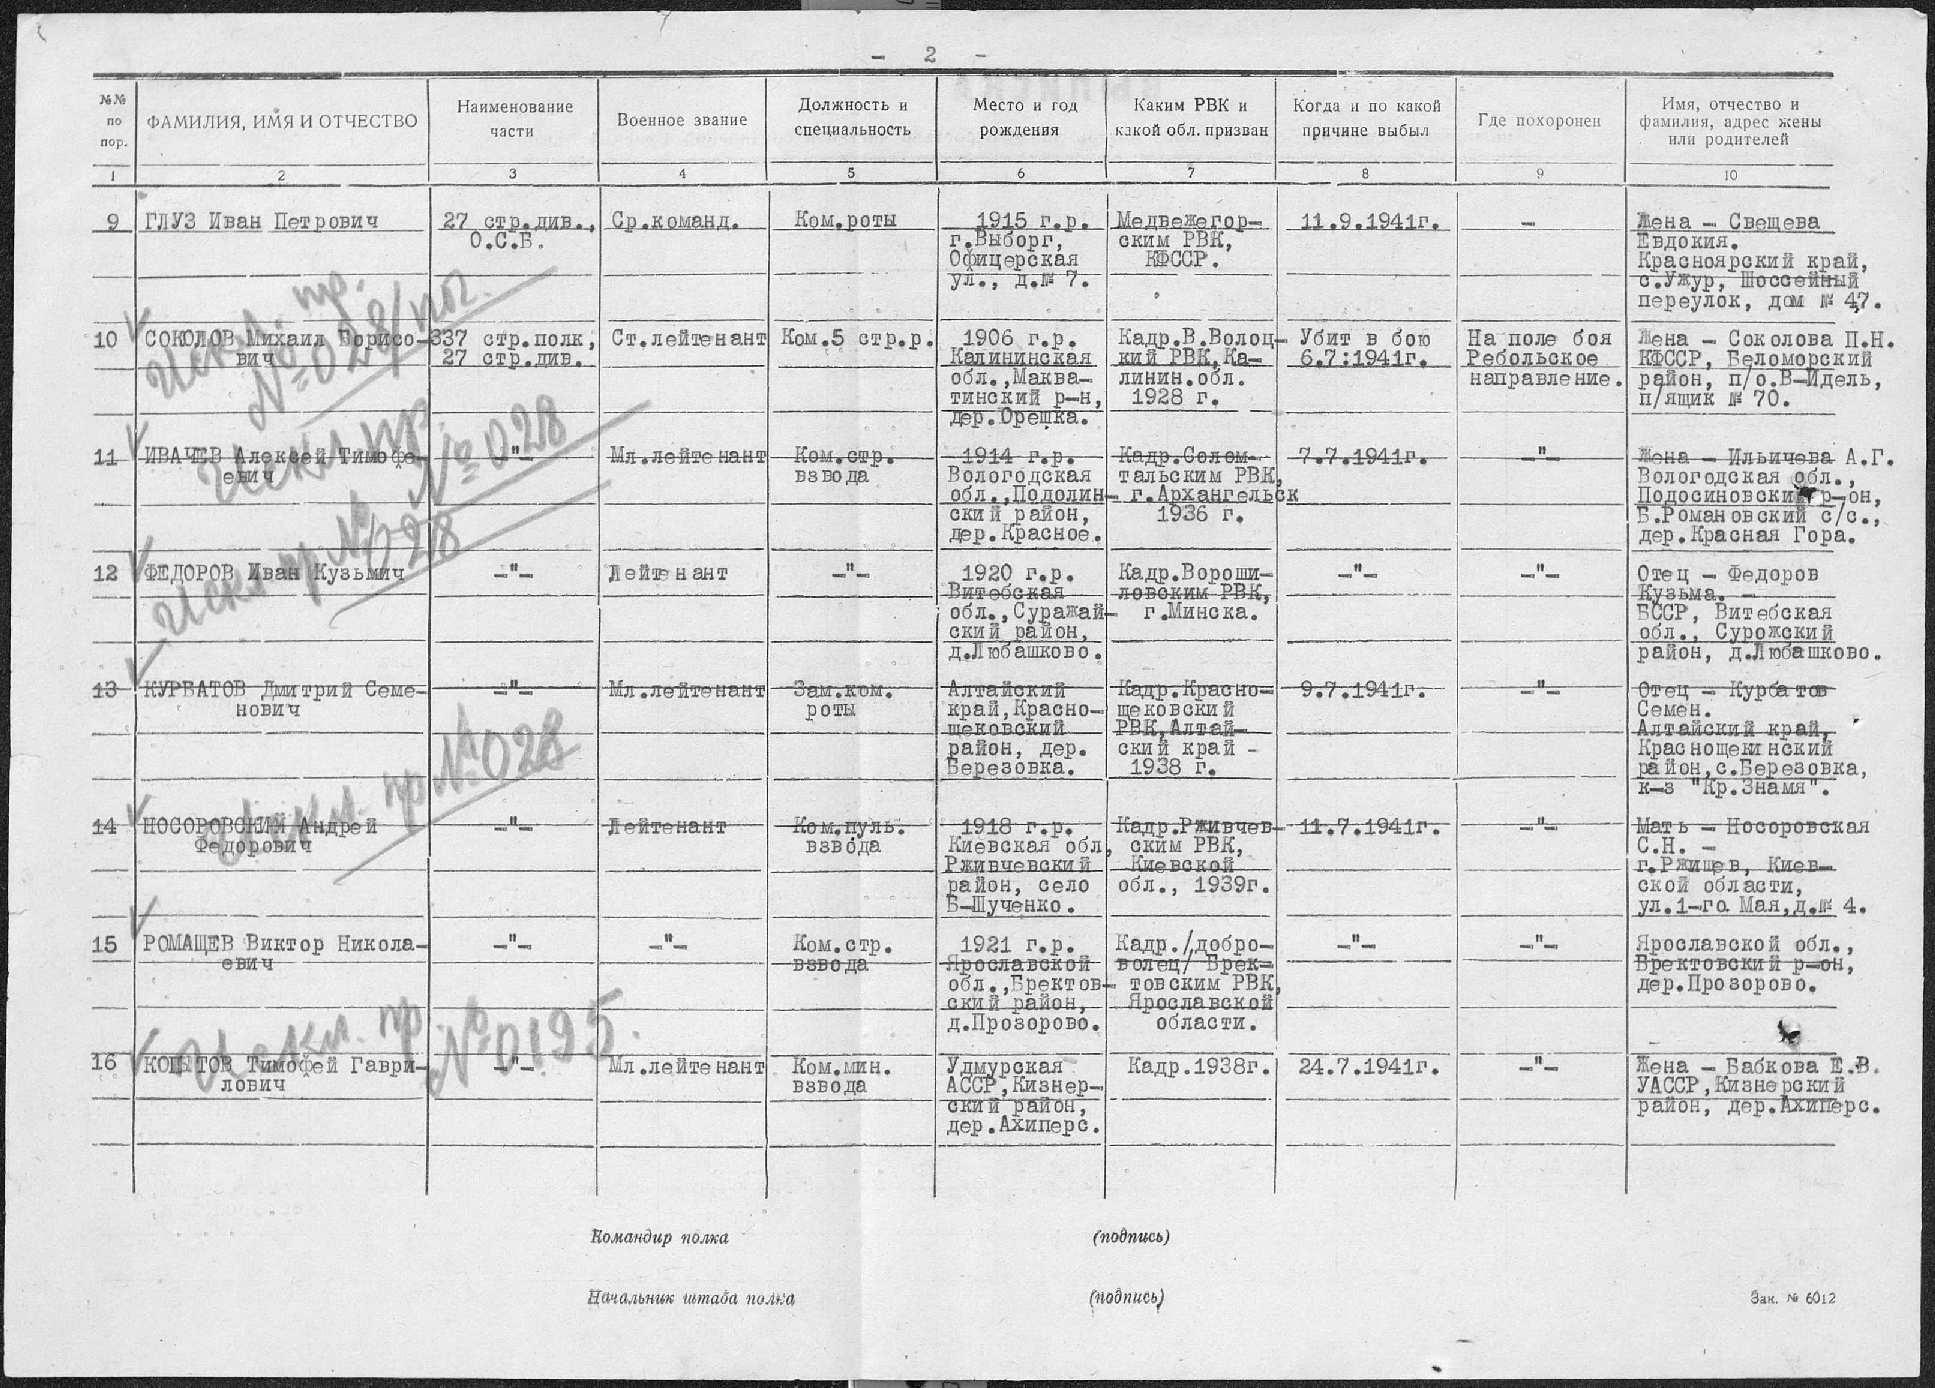 - 2 -
№№ по пор. | ФАМИЛИЯ, ИМЯ И ОТЧЕСТВО | Наименование части | Военное звание | Должность и специальность | Место и год рождения | Каким РВК и какой обл. призван | Когда и по какой причине выбыл | Где похоронен | Имя, отчество и фамилия, адрес жены или родителей
1 | 2 | 3 | 4 | 5 | 6 | 7 | 8 | 9 | 10
9 | ГЛУЗ Иван Петрович | 27 стр.див., | Ср.команд. | Ком.роты | 1915 г.р. | Медвежегор- | 11.9.1941г. | - | Жена - Свещева
О.С.Б. | г.Выборг, | ским РВК, | Евдокия.
Офицерская | КФССР. | Красноярский край,
ул., д.№ 7. | с.Ужур, Шоссейный
переулок, дом № 47.
Искл. пр.
№028/пог.
10 | СОКОЛОВ Михаил Борисо- | 337 стр.полк, | Ст.лейтенант | Ком.5 стр.р. | 1906 г.р. | Кадр.В.Волоц- | Убит в бою | На поле боя | Жена - Соколова П.Н.
вич | 27 стр.див. | Калининская | кий РВК, Ка- | 6.7:1941г. | Ребольское | КФССР, Беломорский
обл.,Маква- | линин.обл. | направление. | район, п/о.В-Идель,
тинский р-н, | 1928 г. | п/ящик № 70.
дер.Орешка.
Искл пр
№028
11 | ИВАЧЕВ Алексей Тимофе- | -"- | Мл.лейтенант | Ком.стр. | 1914 г.р. | Кадр.Солом- | 7.7.1941г. | -"- | Жена - Ильичева А.Г.
евич | взвода | Вологодская | тальским РВК, | Вологодская обл.,
обл.,Подолин- | г.Архангельск | Подосиновский р-он,
ский район, | 1936 г. | Б.Романовский с/с.,
дер.Красное. | дер.Красная Гора.
Искл пр №028
12 | ФЕДОРОВ Иван Кузьмич | -"- | Лейтенант | -"- | 1920 г.р. | Кадр.Вороши- | -"- | -"- | Отец - Федоров
Витебская | ловским РВК, | Кузьма. -
обл.,Суражай- | г.Минска. | БССР, Витебская
ский район, | обл., Сурожский
д.Любашково. | район, д.Любашково.
13 | КУРБАТОВ Дмитрий Семе- | -"- | Мл.лейтенант | Зам.ком. | Алтайский | Кадр.Красно- | 9.7.1941г. | -"- | Отец - Курбатов
нович | роты | край,Красно- | щековский | Семен.
щековский | РВК,Алтай- | Алтайский край,
район, дер. | ский край - | Краснощекинский
Березовка. | 1938 г. | район,с.Березовка,
к-з "Кр.Знамя".
Искл. пр №028
14 | НОСОРОВСКИЙ Андрей | -"- | Лейтенант | Ком.пуль. | 1918 г.р. | Кадр.Рживчев- | 11.7.1941г. | -"- | Мать - Носоровская
Федорович | взвода | Киевская обл, | ским РВК, | С.Н. -
Рживчевский | Киевской | г.Ржищев, Киев-
район, село | обл., 1939г. | ской области,
Б-Шученко. | ул.1-го Мая,д.№ 4.
15 | РОМАЩЕВ Виктор Никола- | -"- | -"- | Ком.стр. | 1921 г.р. | Кадр./добро- | -"- | -"- | Ярославской обл.,
евич | взвода | Ярославской | волец/ Брек- | Бректовский р-он,
обл.,Бректов- | товским РВК, | дер.Прозорово.
ский район, | Ярославской
д.Прозорово. | области.
Искл. пр №0195.
16 | КОПЫТОВ Тимофей Гаври- | -"- | Мл.лейтенант | Ком.мин. | Удмурская | Кадр.1938г. | 24.7.1941г. | -"- | Жена - Бабкова Е.В.
лович | взвода | АССР,Кизнер- | УАССР,Кизнерский
ский район, | район, дер.Ахиперс.
дер.Ахиперс.
Командир полка (подпись)
Начальник штаба полка (подпись)
Зак. № 6012